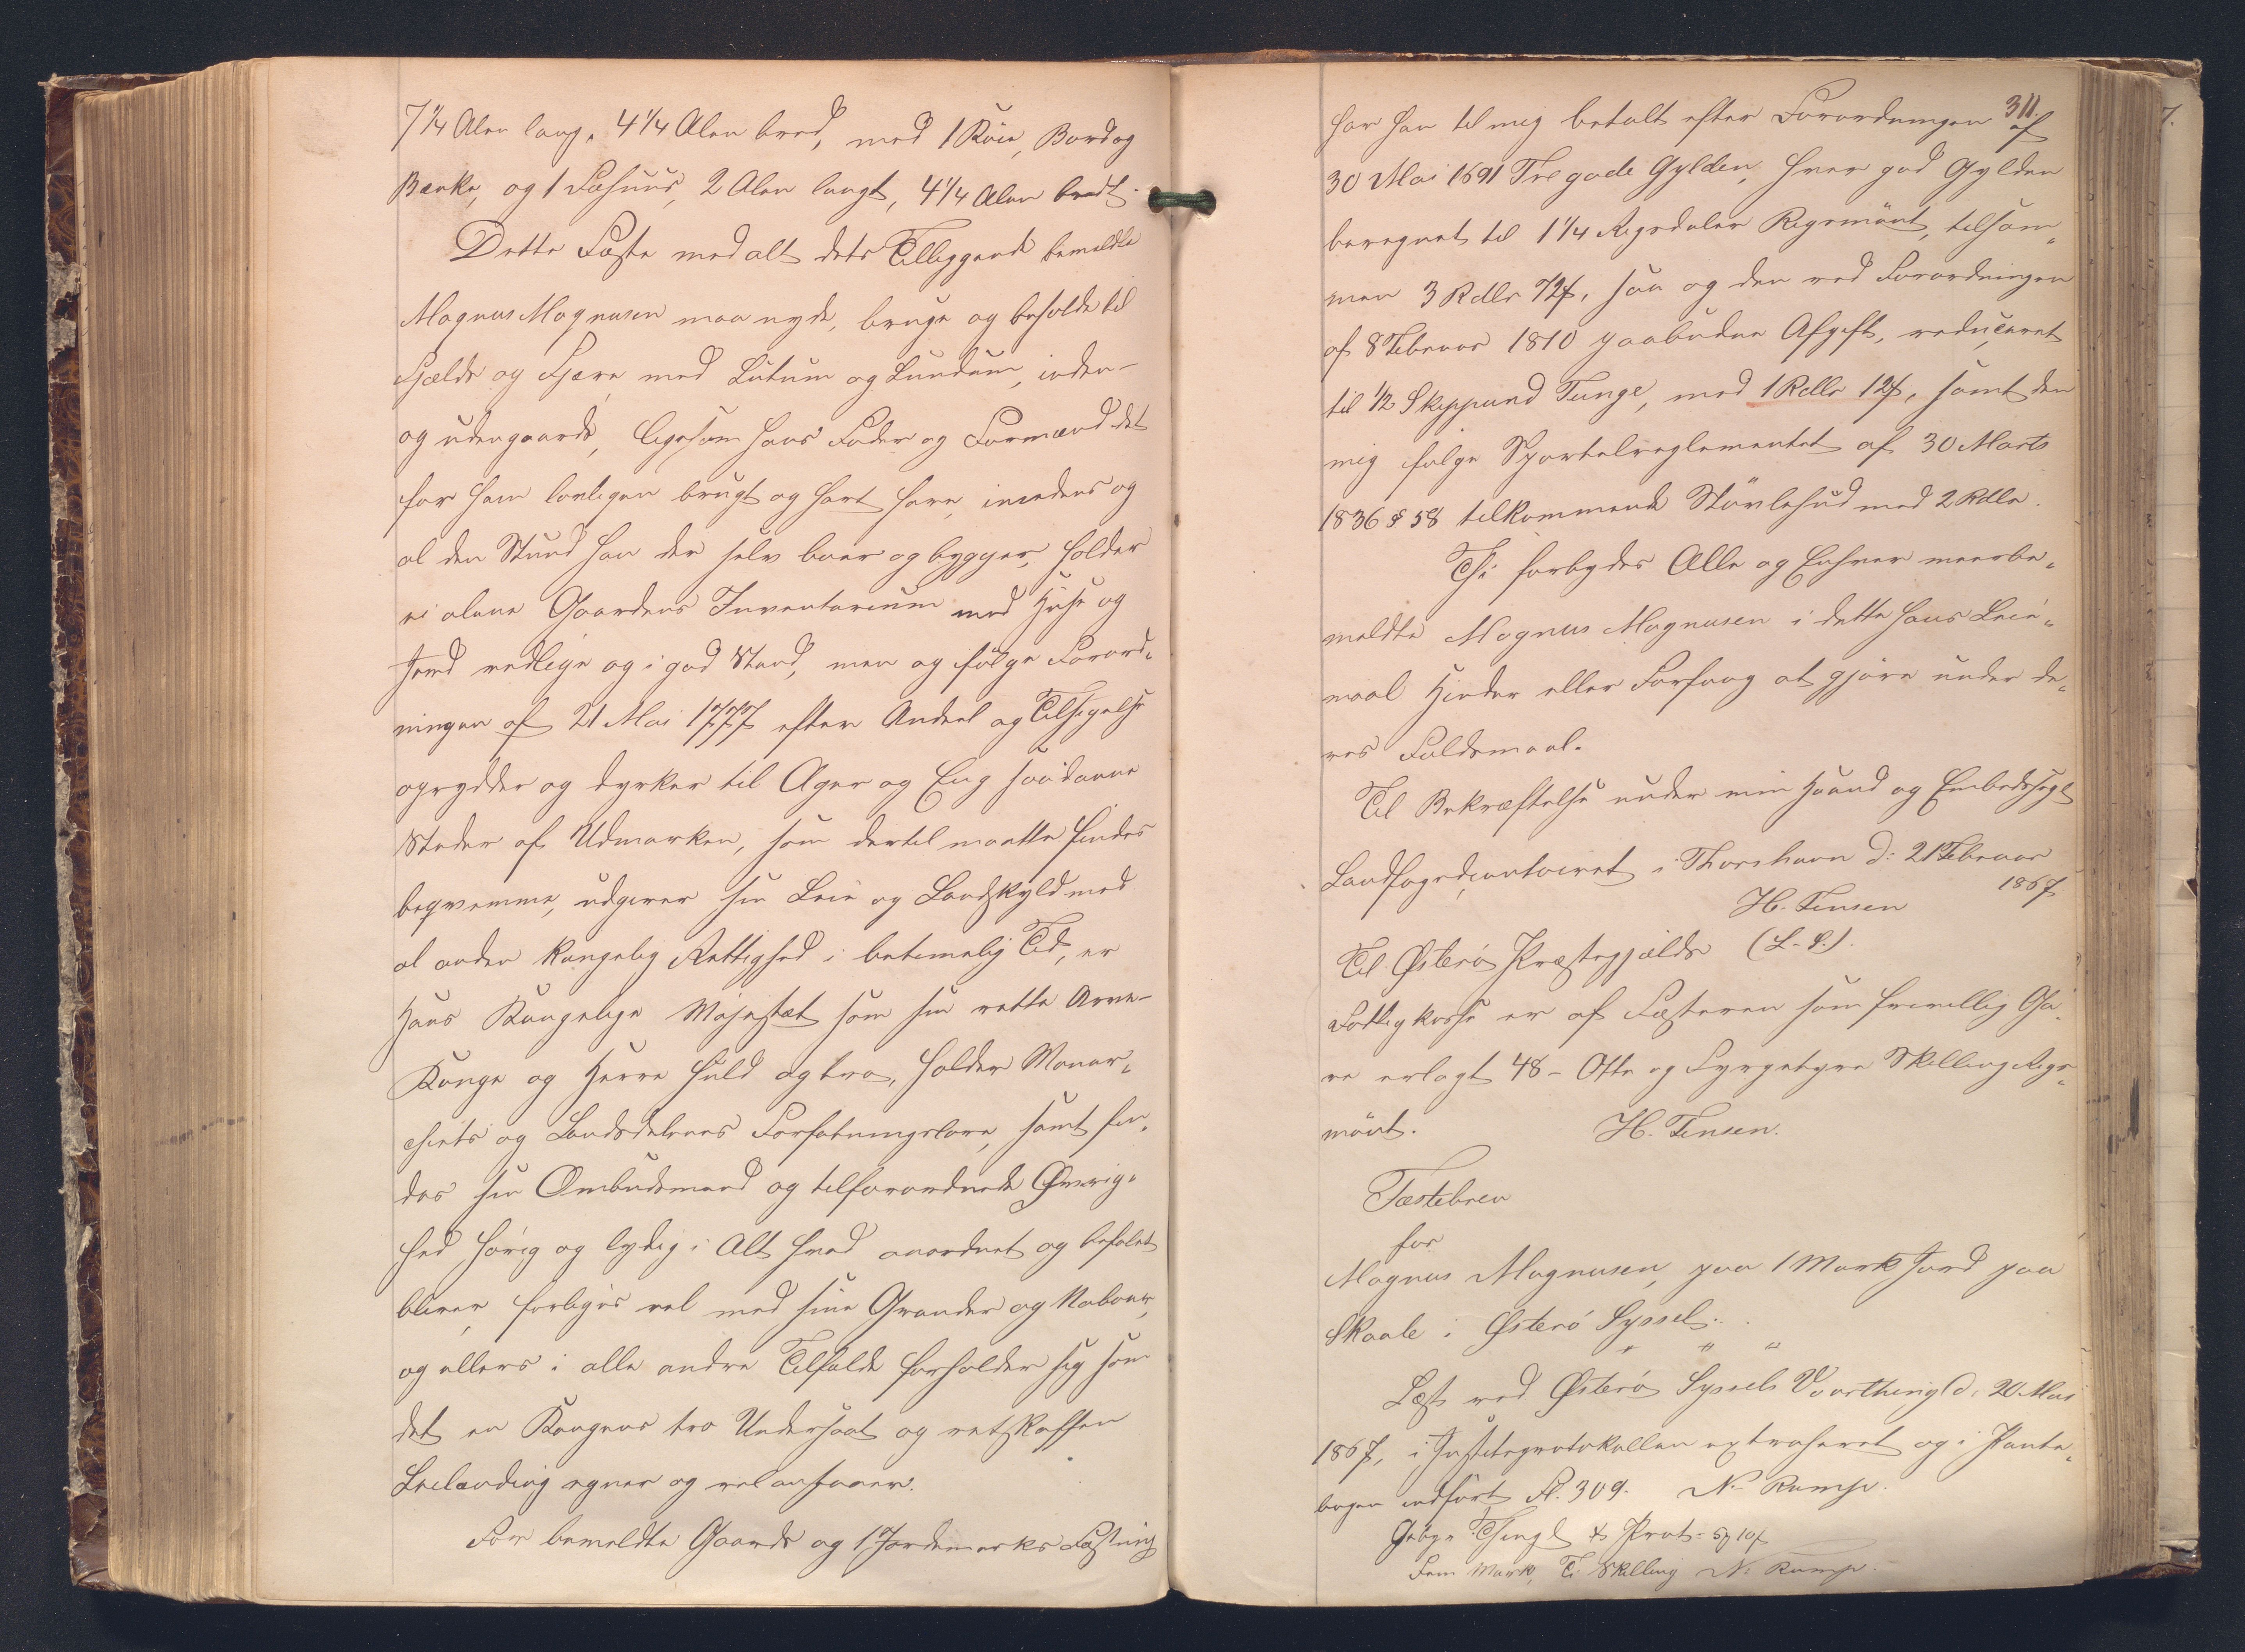 7 1/4 Alen lang, 4 1/4 Alen bred, med 1 Röie, Bord og
Bænke, og 1 Fæhuus, 2 Alen langt, 4 1/4 Alen bredt.
Dette Fæste med alt dets Tilliggende bemeldte
Magnus Magnusen maa nyde, bruge og beholde til
Fjelds og Fjære med Lutum og Lundum, inden-
og udengaards, ligesom hans Fader og Formænd det
for ham lovligen brugt og havt have, imedens og
al den Stund han der selv boer og bygger, holder
ei alene Gaardens Inventarium med Huse og
Jord vedlige og i god Stand, men og ifölge Forord-
ningen af 21 Mai 1777 efter Andeel og Tilsigelse
oprydder og dyrker til Ager og Eng saadanne
Steder af Udmarken, som dertil maatte findes
beqvemme, udgiver sin Leie og Landskyld med
al anden Kongelig Rettighed i betimelig Tid, er
Hans Kongelige Majestæt som sin rette Arve-
Konge og Herre huld og tro, holder Monar-
chiets og Landsdelenes Forfatningslove, samt fin-
des sin Ombudsmand og tilforordnede Øvrig-
hed hörig og lydig i Alt hvad anordnet og befalet
bliver, forliges vel med sine Grander og Naboer,
og ellers i alle andre Tilfælde forholder sig som
det en Kongens tro Undersaat og retskaffen
Leilænding egner og vel anstaaer.
For bemeldte Gaards og 1 Jordemarks Fæstning
311.
har han til mig betalt efter Forordningen af
30 Mai 1691 Tre gode Gylden, hver god Gylden
beregnet til 1 1/4 Rigsdaler Rigsmönt, tilsam-
men 3 Rdlr 72 ß, saa og den ved Forordningen
af 8 Februar 1810 paabudne Afgift, reduceret
til 1/2 Skippund Tunge, med 1 Rdlr 12 ß, samt den
mig ifölge Sportelreglementet af 30 Marts
1836 § 58 tilkommende Stövlehud med 2 Rdlr.
Thi forbydes Alle og Enhver meerbe-
meldte Magnus Magnusen i dette hans Leie-
maal Hinder eller Forfang at gjöre under de-
res Faldsmaal.
Til Bekræftelse under min Haand og Embedssegl
Landfogedcontoiret i Thorshavn d: 21 Februar
1867
H. Finsen
(L. S.).
Til Østerø Præstegjælds
Fattigkasse er af Fæsteren som frivillig Ga-
ve erlagt 48 - Otte og Fyrgetyve Skilling Rigs-
mönt. H. Finsen.
Fæstebrev
for
Magnus Magnusen, paa 1 Mark Jord paa
Skaale i Østerö Syssel.
Læst ved Østerø Syssels Vaarthing d: 20 Mai
1867, i Justitsprotokollen extraheret og i Pante-
bogen indfört Fl. 309. N. Rump.
Gebyr Thingl & Prot = 5 ꝟ 10 ß
Fem Mark, Ti Skilling N. Rump.